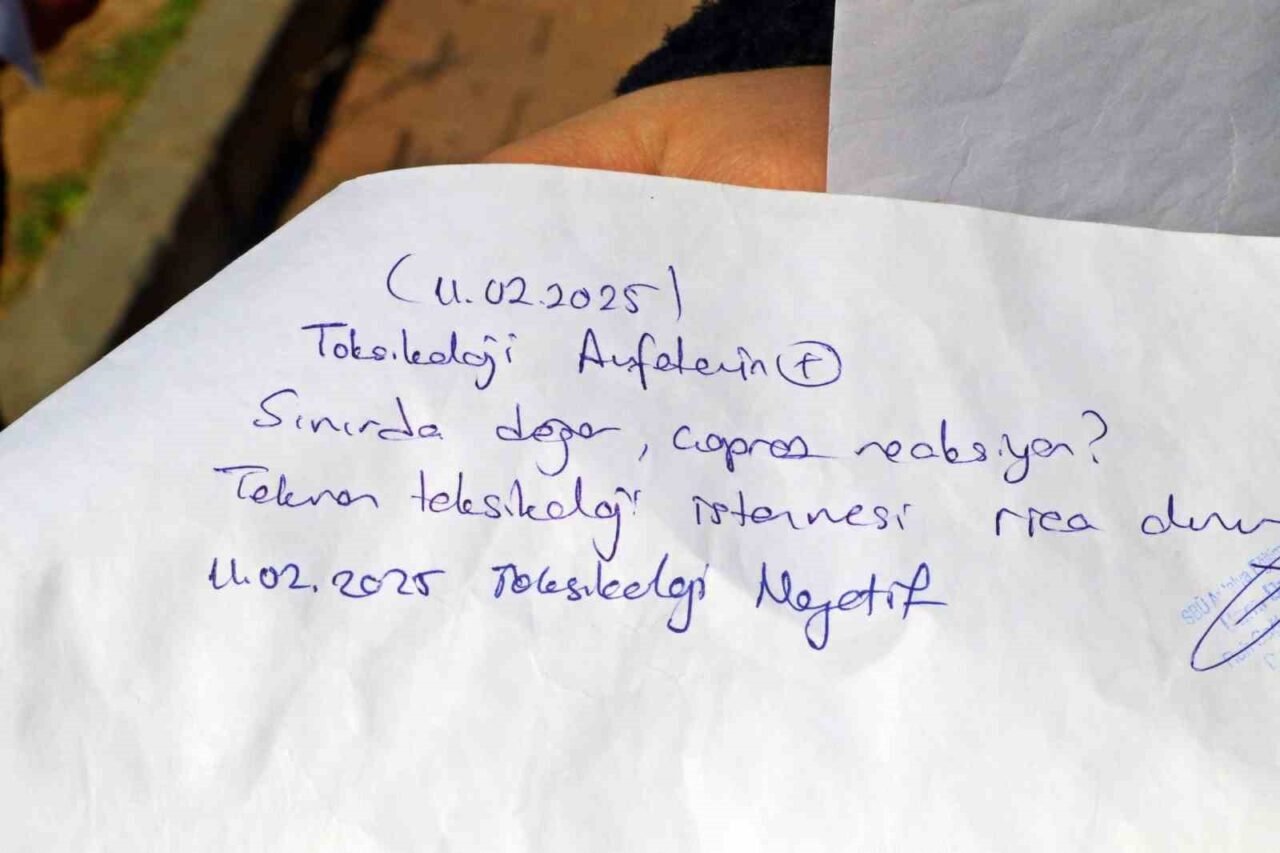 (11.02.2025)
Toksikoloji Amfetamin (+)
Sınırda değer, çapraz reaksiyon?
Tekrar toksikoloji istenmesi rica olunur
11.02.2025 Toksikoloji Negatif
SBÜ Antalya